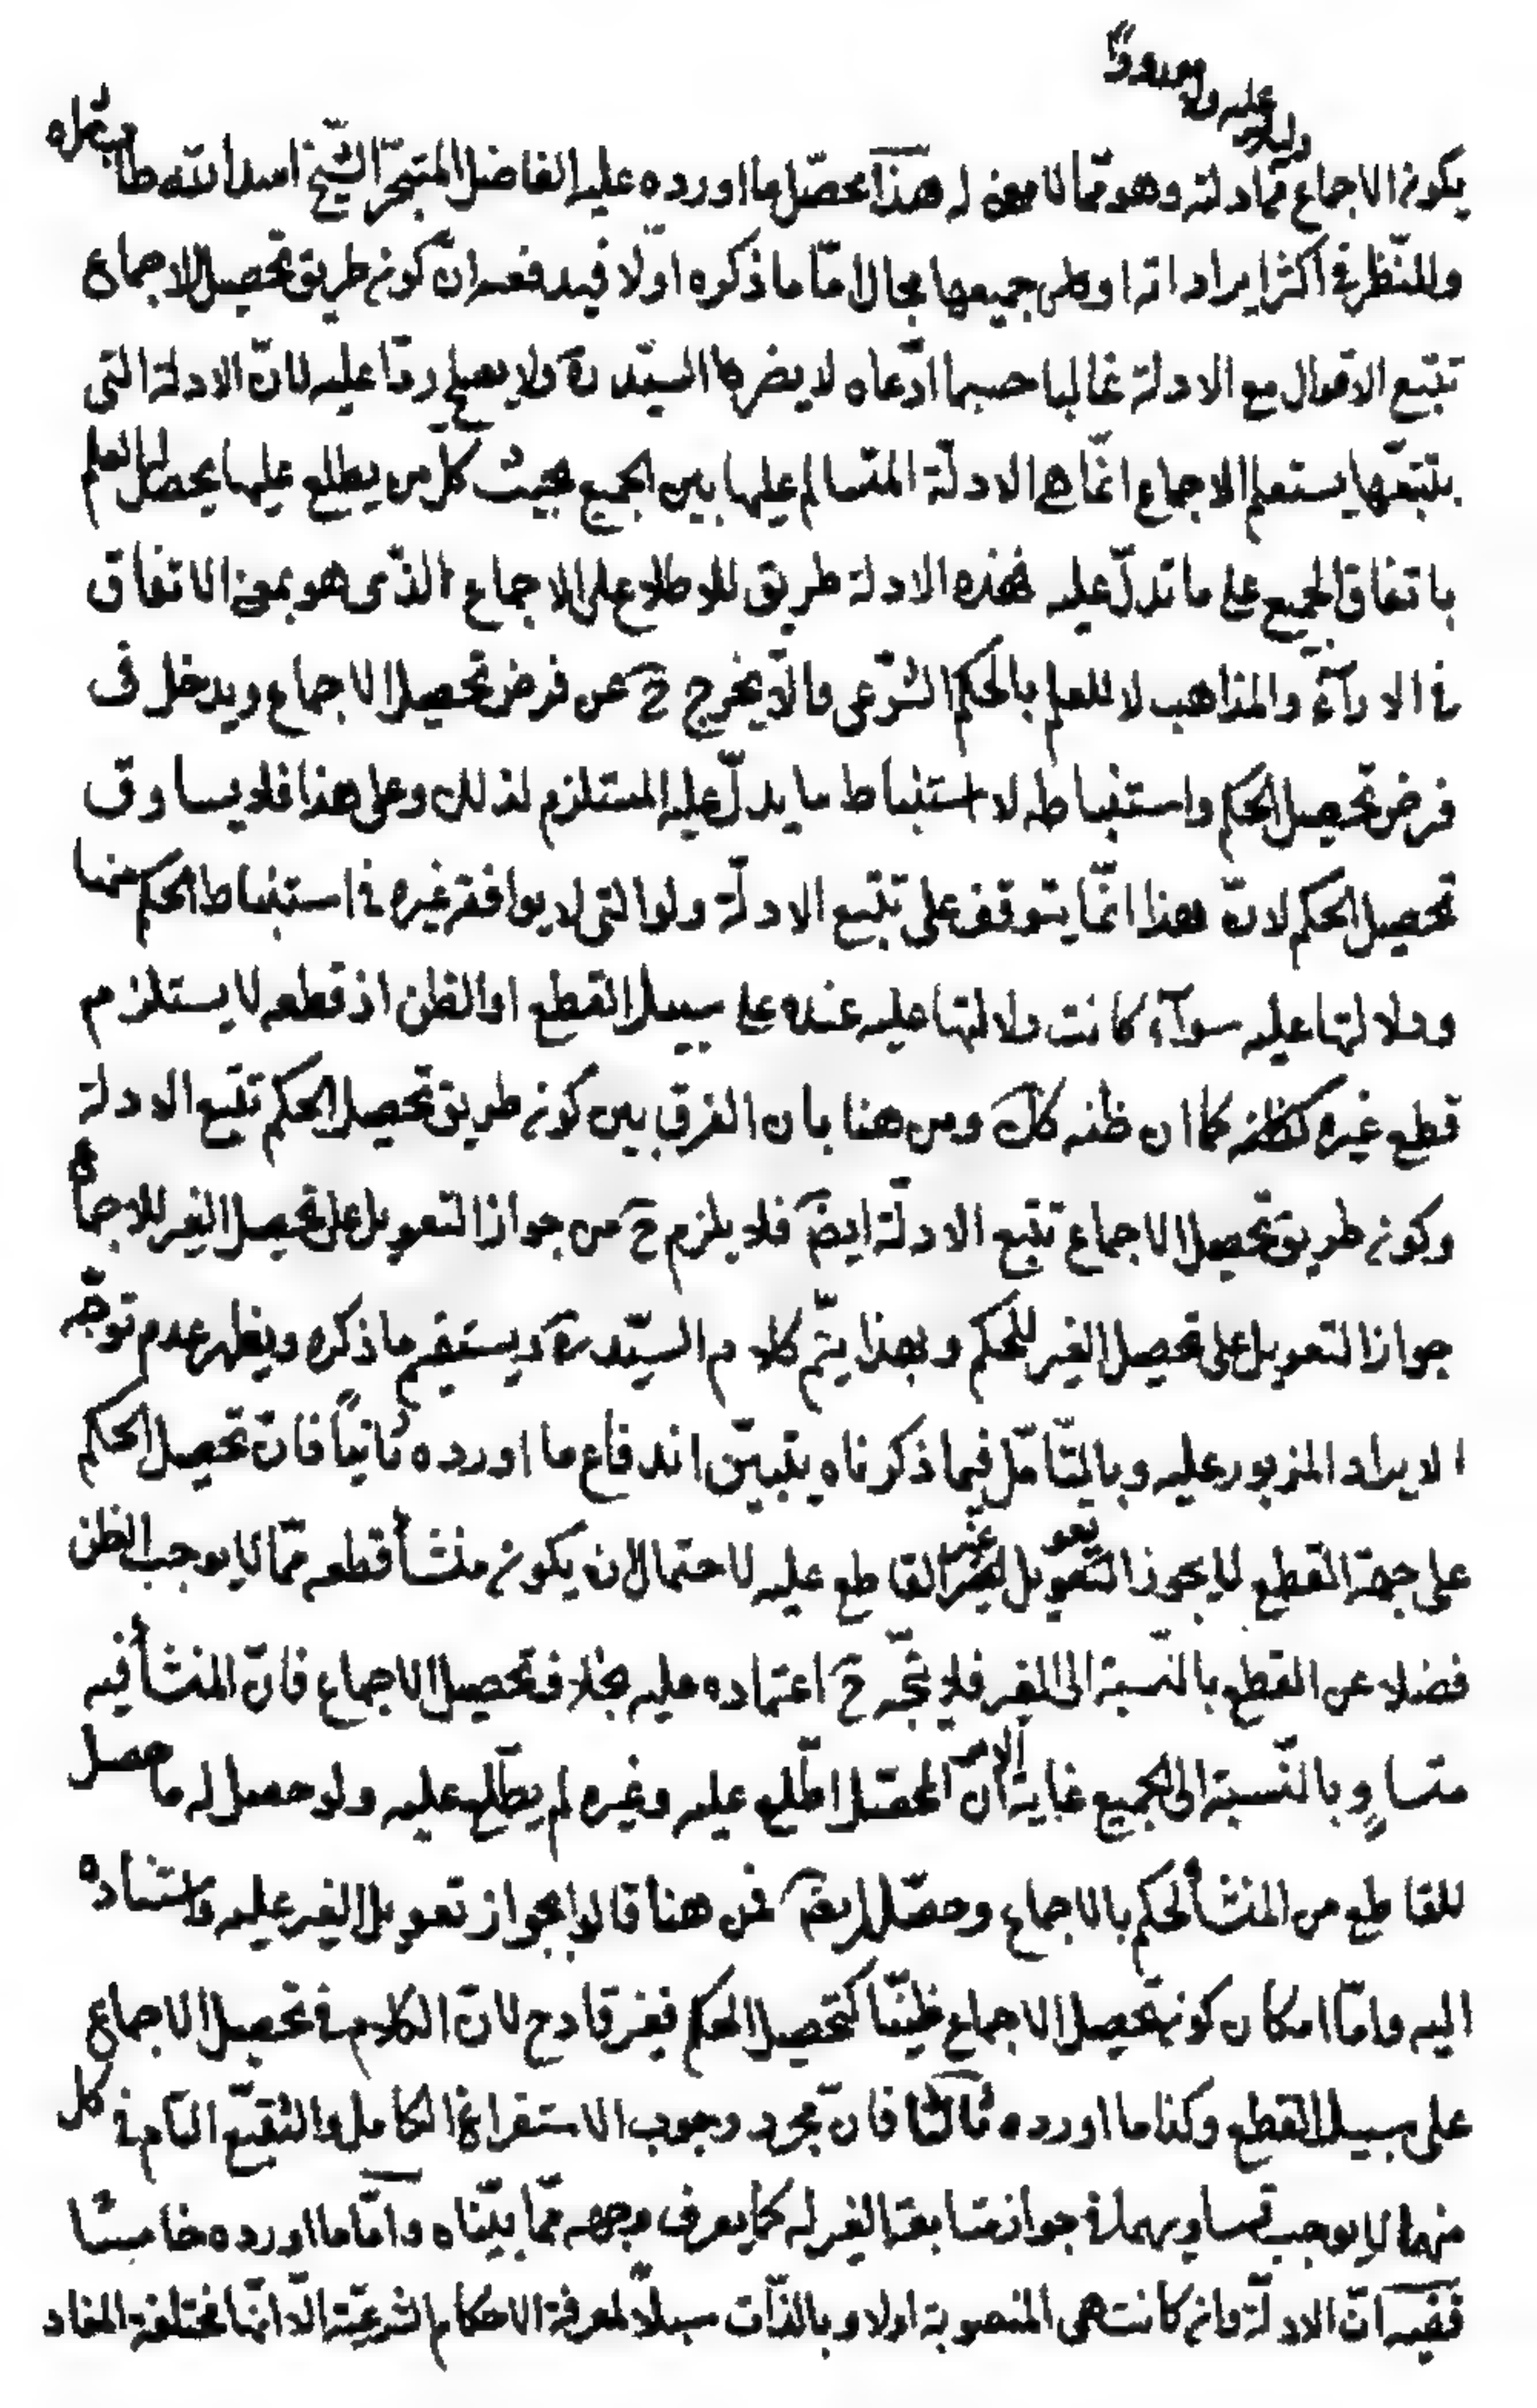 دليلا عليه
يكون الاجماع مما دلته وهو مما لا معنى له هذا محصّل ما اورده عليه الفاضل المتبحّر الشيخ اسد الله طاب ثراه
وللنّظر فى اكثر ايراداته او على جميعها مجال امّا ما ذكره اوّلا فيدفعه انّ كون طريق تحصيل الاجماع
تتبع الاقوال مع الادلة غالبا حسبما ادّعاه لا يضر السيّد ره ولا يصلح ردّا عليه لانّ الادلة التى
بتتبّعها يستعلم الاجماع انّما هى الادلّة المتسالم عليها بين الجميع بحيث كل من يطلع عليها يحصل له العلم
باتفاق الجميع على ما تدلّ عليه فهذه الادلة طريق للاطلاع على الاجماع الذّى هو بمعنى الاتفاق
فى الارآء والمذاهب لا للعلم بالحكم الشّرعى والّا يخرج ح عن فرض تحصيل الاجماع ويدخل فى
فرض تحصيل الحكم واستنباطه لا استنباط ما يدلّ عليه المستلزم لذلك وعلى هذا فلا يساوق
تحصيل الحكم لانّ هذا انّما يتوقف على تتبع الادلّة ولو التى لا يوافقه غيره فى استنباط الحكم منها
ودلالتها عليه سوآء كانت دلالتها عليه عنده على سبيل القطع او الظن اذ قطعه لا يستلزم
قطع غيره كظنه كما ان ظنه كك ومن هنا بان الفرق بين كون طريق تحصيل الحكم تتبع الادلة
وكون طريق تحصيل الاجماع تتبع الادلّة ايضا فلا يلزم ح من جواز التعويل على تحصيل الغير للاجماع
جواز التعويل على تحصيل الغير للحكم وبهذا يتمّ كلام السيّد ره ويستقيم ما ذكره ويظهر عدم توجّه
الايراد المزبور عليه وبالتّامّل فيما ذكرناه يتبيّن اندفاع ما اورده ثانياً فانّ تحصيل الحكم
على جهة القطع لا يجوز التعويل لغير القاطع عليه لاحتمال ان يكون منشأ قطعه ممّا لا يوجب الظن
فضلا عن القطع بالنّسبة الى الغير فلا يتّجه ح اعتماده عليه بخلاف تحصيل الاجماع فانّ المنشأ فيه
متساوٍ بالنّسبة الى الجميع غاية الامر انّ المحصّل اطّلع عليه وغيره لم يطّلع عليه ولو حصل له ما حصل
للقاطع من المنشأ لحكم بالاجماع وحصّله ايضا فمن هنا قالوا بجواز تعويل الغير عليه واستناده
اليه وامّا امكان كون تحصيل الاجماع ظنيّا كتحصيل الحكم فغير قادح لانّ الكلام فى تحصيل الاجماع
على سبيل القطع وكذا ما اورده ثالثا فانّ مجرد وجوب الاستفراغ الكامل والتتبّع التام فى كل
منهما لا يوجب تساويهما فى جواز متابعة الغير له كما يعرف وجهه ممّا بيّنّاه وامّا ما اورده خامسا
ففيه انّ الادلّة وان كانت هى المنصوبة اولا وبالذّات سبيلاً لمعرفة الاحكام الشرعيّة الّا انّها مختلفة المفاد